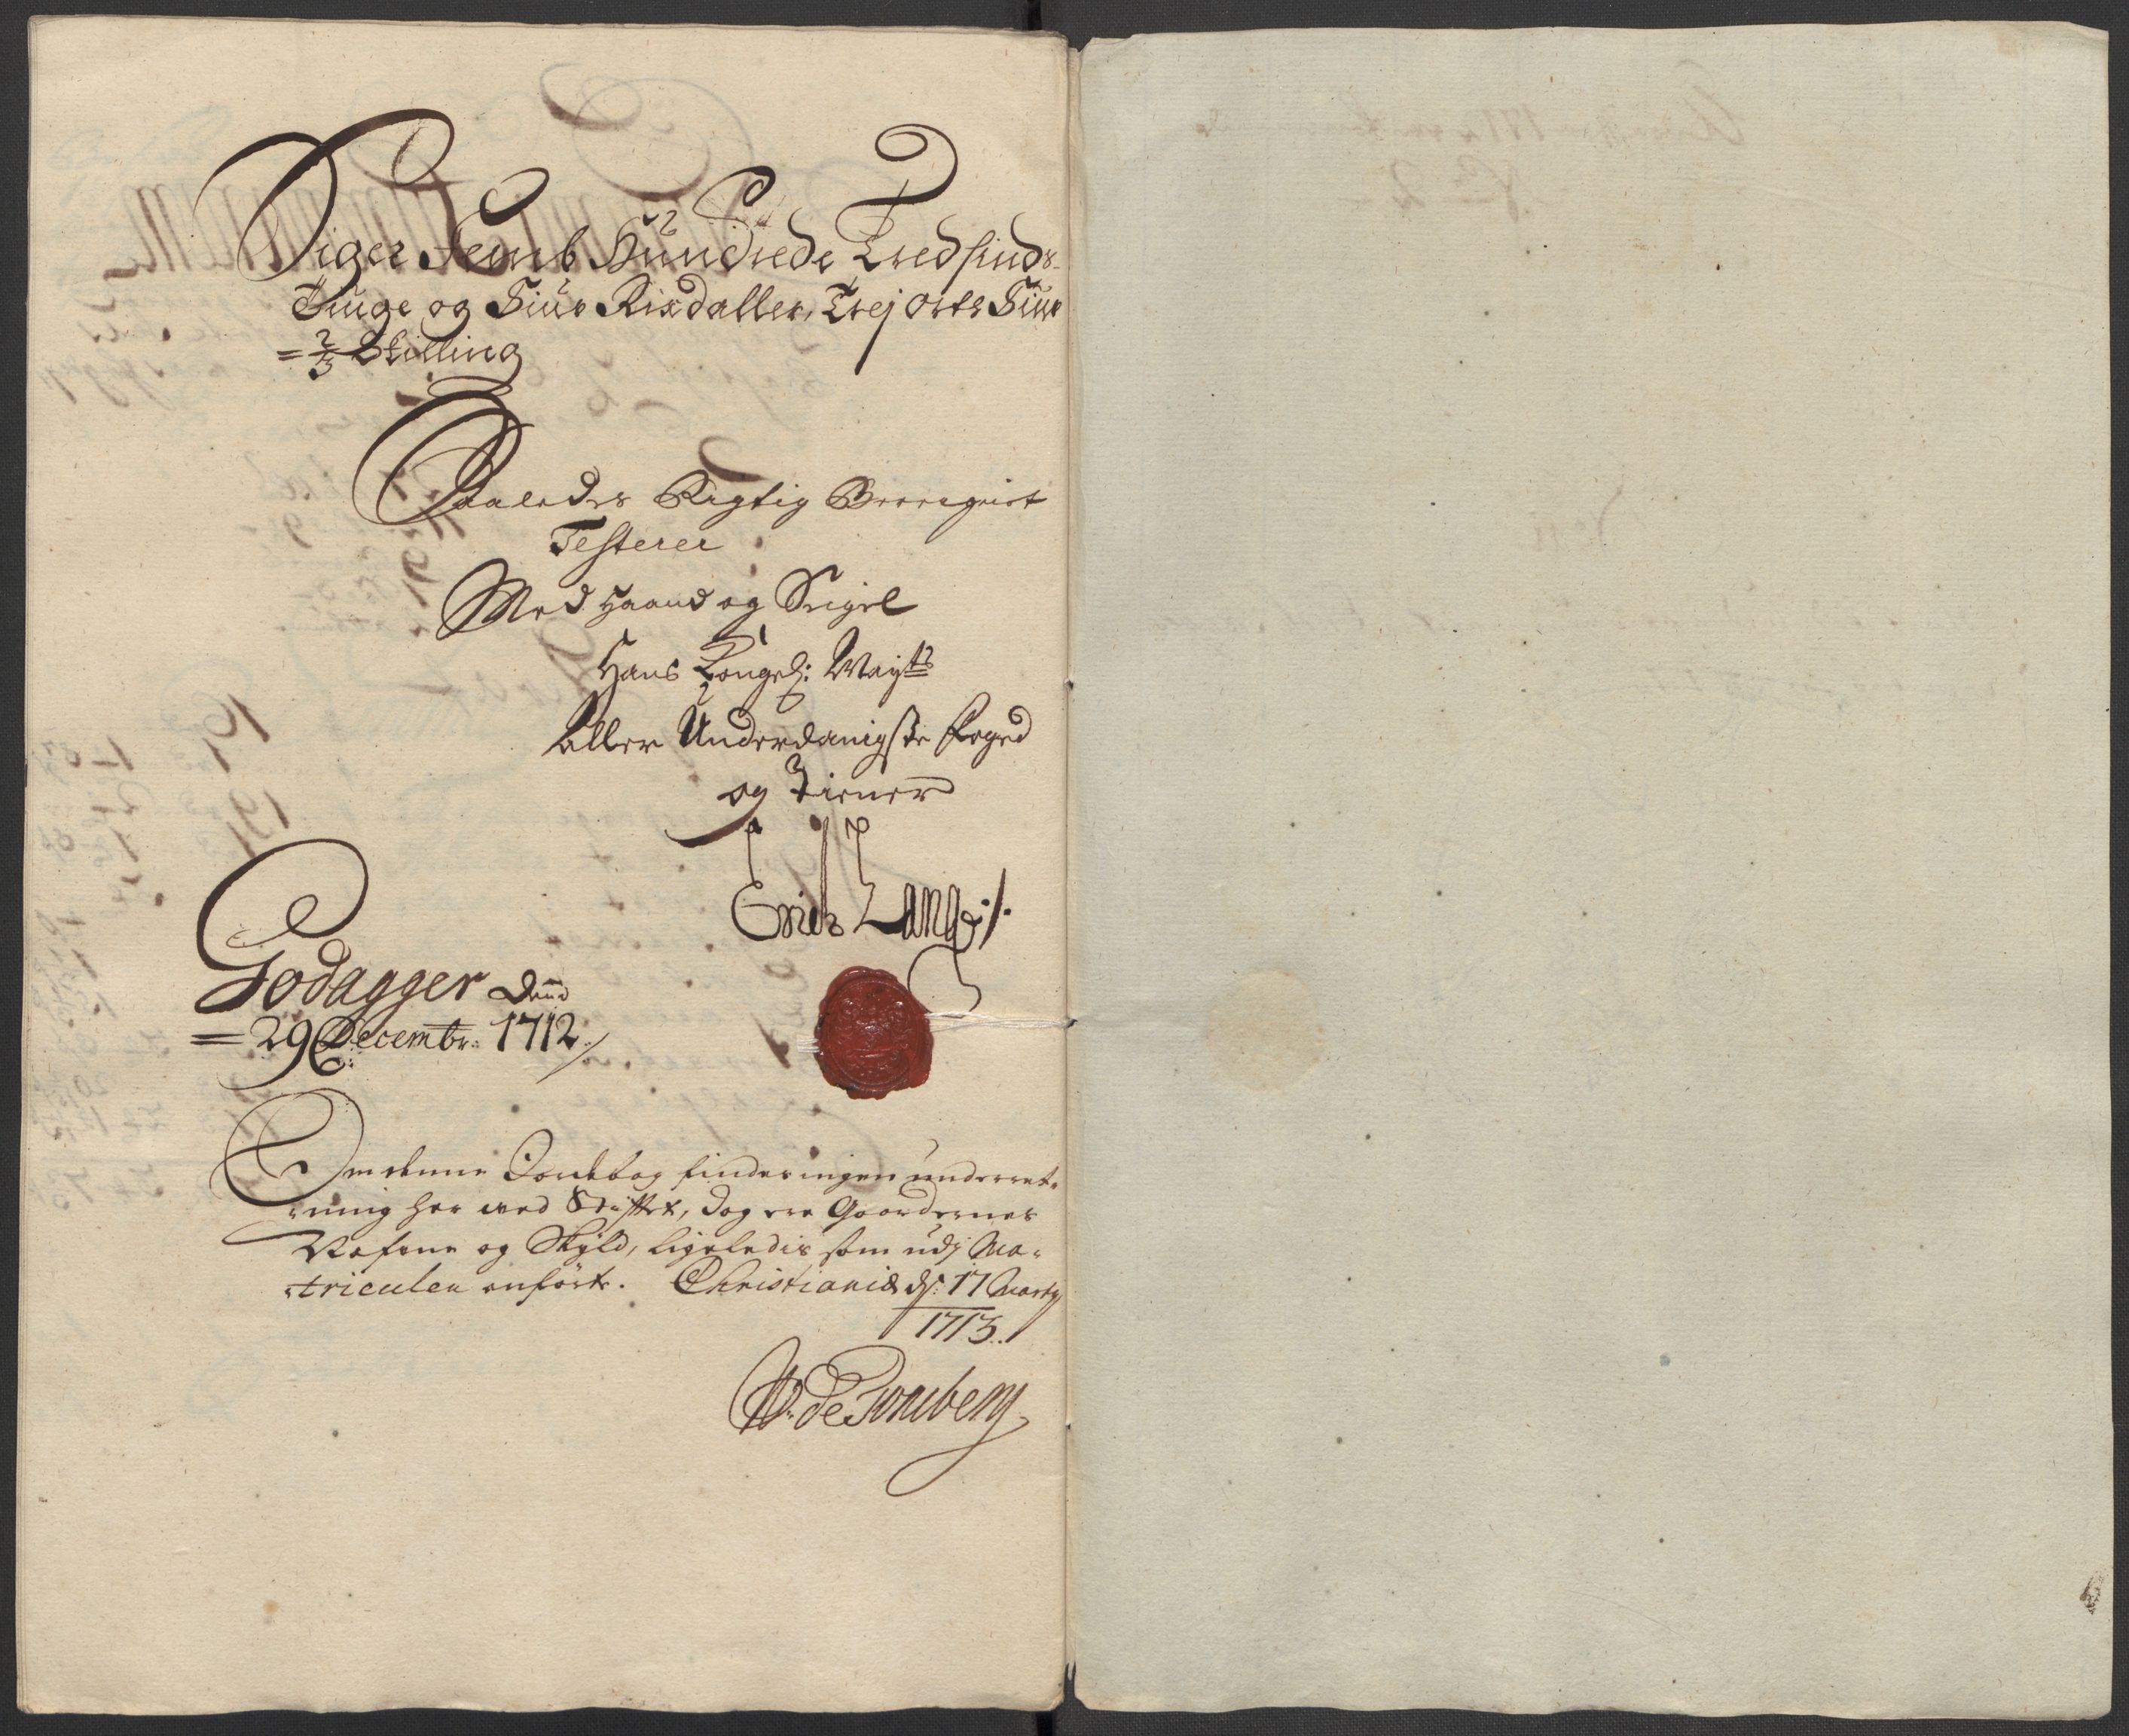 Siger Femb Hundrede Tredsinds-
Tiuge og Fiire Rixdaller, Trej Orts Fiire
= 2/3 Skilling
Saaledes Rigtig Beregnet
Testerer
Med Haand og Seigel
Hans Kongel: Mayts
Aller Underdanigste Foged
og Tiener
Erich Lange ./.
Godagger Dend
= 29 Decembr: 1712 ./
Om denne Jordebog findes ingen underret-
-ning her ved Stiftet, dog ere Gaardernes
Nafne og Skyld, ligeledis som udj Ma-
-triculen anført. Christiania d: 17 Marty
1713 ./
W. de Tonsberg